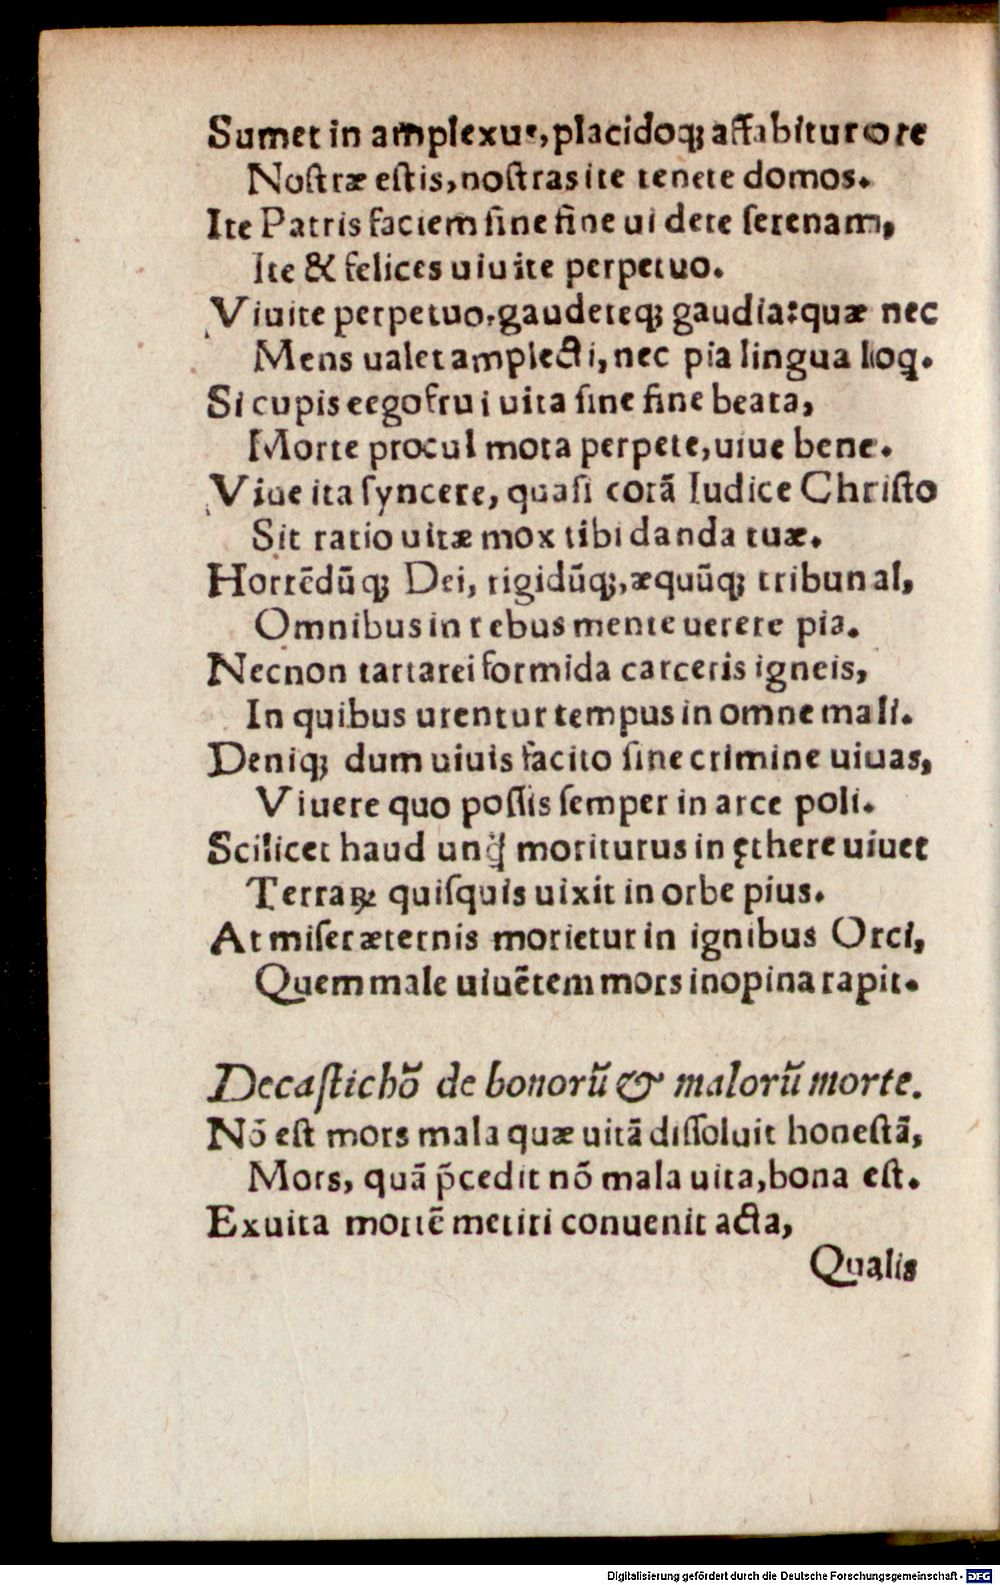 Sumet in amplexus, placidoq; affabitur ore
Nostræ estis, nostras ite tenete domos.
Ite Patris faciem sine fine uidete serenam,
Ite & felices uiuite perpetuo.
Viuite perpetuo, gaudeteq; gaudia: quæ nec
Mens ualet amplecti, nec pia lingua loq.
Si cupis eego frui uita sine fine beata,
Morte procul mota perpete, uiue bene.
Viue ita syncere, quasi corã Iudice Christo
Sit ratio uitæ mox tibi danda tuæ.
Horrẽdũq; Dei, rigidũq;, æquũq; tribunal,
Omnibus in rebus mente uerere pia.
Necnon tartarei formida carceris igneis,
In quibus urentur tempus in omne mali.
Deniq; dum uiuis facito sine crimine uiuas,
Viuere quo possis semper in arce poli.
Scilicet haud unq̃ moriturus in ęthere uiuet
Terraꝝ quisquis uixit in orbe pius.
At miser æternis morietur in ignibus Orci,
Quem male uiuẽtem mors inopina rapit.
Decastichõ de bonorũ & malorũ morte.
Nõ est mors mala quæ uitã dissoluit honestã,
Mors, quã p̃cedit nõ mala uita, bona est.
Ex uita mortẽ metiri conuenit acta,
Qualis
Digitalisierung gefördert durch die Deutsche Forschungsgemeinschaft - DFG